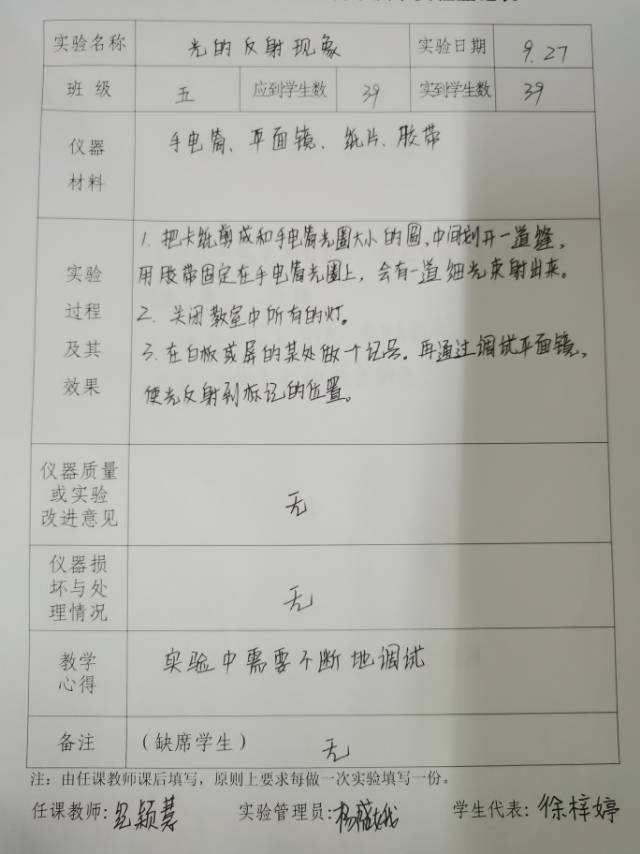 实验名称 光的反射现象 实验日期 9.27
班级 五 应到学生数 39 实到学生数 39
仪器材料 手电筒、平面镜、纸片、胶带
实验过程及其效果
1. 把卡纸剪成和手电筒光圈大小的圆,中间划开一道缝,
用胶带固定在手电筒光圈上,会有一道细光束射出来。
2. 关闭教室中所有的灯。
3. 在白板或屏的某处做个记号。再通过调试平面镜,
使光反射到标记的位置。
仪器质量或实验改进意见 无
仪器损坏与处理情况 无
教学心得 实验中需要不断地调试
备注 (缺席学生) 无
注:由任课教师课后填写,原则上要求每做一次实验填写一份。
任课教师: 颖慧 实验管理员: 杨 学生代表:徐梓婷